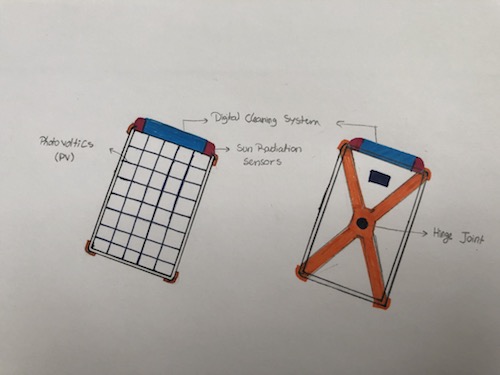 Digital Cleaning System
Photovoltics
(PV)
Sun Radiation
Sensors
Hinge Joint